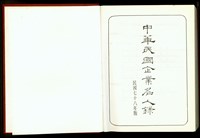 中華民國企業名人錄
民國七十八年版